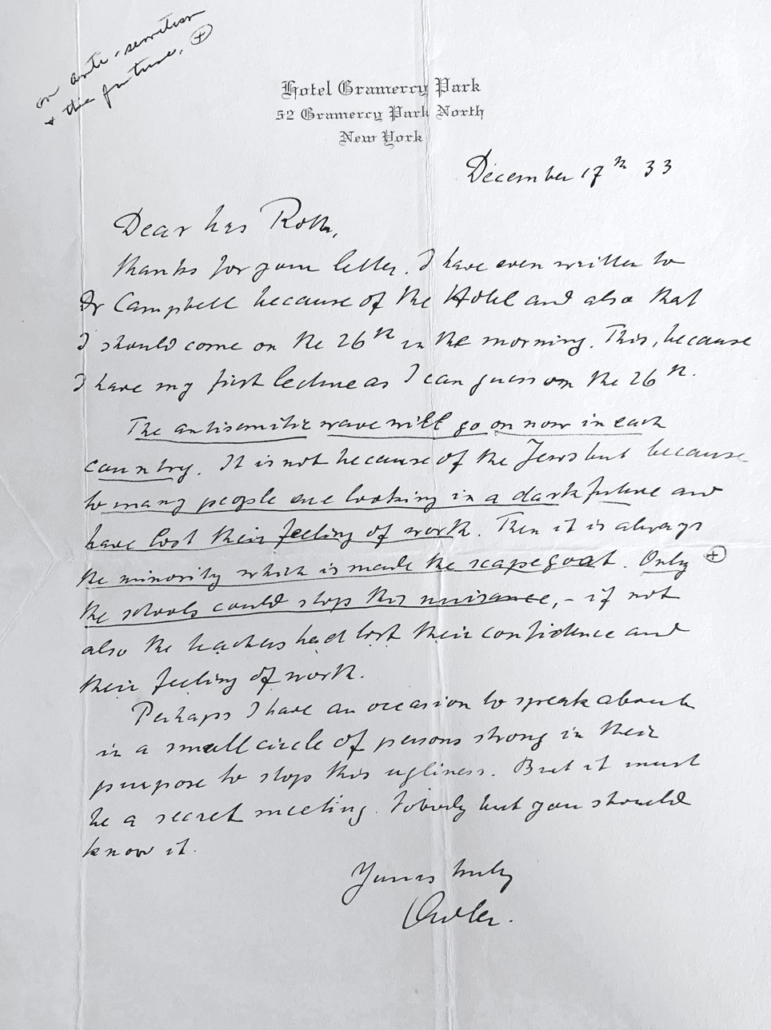 on anti-semitism
& the future, ⊕
Hotel Gramercy Park
52 Gramercy Park North
New York
December 17th 33
Dear Mrs Roth,
thanks for your letter. I have even written to
Dr Campbell because of the Hotel and also that
I should come on the 26th in the morning. This, because
I have my first lecture as I can guess on the 26th.
The antisemitic wave will go on now in each
country. It is not because of the Jews but because
to many people are looking in a dark future and
have lost their feeling of worth. Then it is always
the minority which is made the scapegoat. Only ⊕
the schools could stop this nuisance, - if not
also the teachers had lost their confidence and
their feeling of worth.
Perhaps I have an occasion to speak about
in a small circle of persons strong in their
purpose to stop this ugliness. But it must
be a secret meeting. Nobody but you should
know it.
Yours truly
Adler.